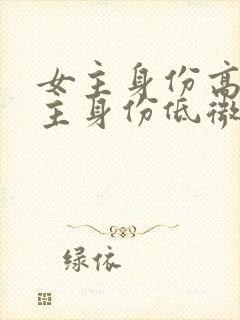 女主身份高
主身份低微
绿依